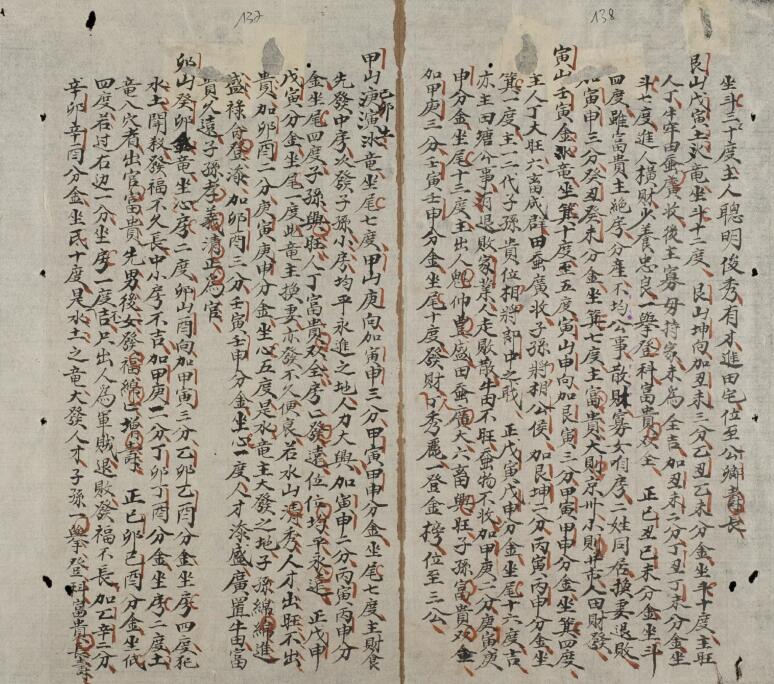 138
坐斗三十度主人聰明俊秀有才進田宅位至公卿壽長
艮山戊寅土火竜坐斗十二度艮山坤向加丑未三分乙丑乙未分金坐斗十度主旺
人丁牛牢田蚕廣收後主寡母持家未為全吉加丑未二分丁丑丁未分金坐
斗七度進人橫財少善忠良举登科富貴双全 正己丑己未分金坐斗
四度雖富貴主絶房分產不均公事散財寡女有序二姓同居換妻退敗
加寅申三分癸丑癸未分金坐箕七度主富貴大則京州小則艹市人田財發
寅山壬寅金竜坐箕十度至五度寅山申向加艮寅三分甲寅甲申分金坐箕四度
主人丁大旺六畜成群田蚕廣收子孫將相公侯加艮坤二分丙寅丙申分金坐
箕一度主一二代子孫貴位相將郎中之职 正戊寅戊申分金坐尾十六度吉
亦主田塘公事有退敗家業人走敗散牛田不旺蚕物不收加甲庚二分庚寅庚
申分金坐尾十三度主出人魁仲豊盛田蚕廣大六畜興旺子孫富貴双全
加甲庚三分壬寅壬申分金坐尾十度發財丁秀麗一登金榜位至三公
137
己卯土
甲山演演水竜坐尾七度甲山庚向加寅申三分甲寅甲申分金坐尾七度主財食
先發中房次發子孫小房均平永進之地人力大興加寅申二分丙寅丙申分
金坐尾四度子孫興旺人丁富貴双全房々發達位位均平永遠 正戊申
戊寅分金坐尾一度此竜主換妻亦發不久便良若水山清秀人才出旺不出
貴加卯酉二分庚寅庚申分金坐心五度是水竜主大發之地子孫綿綿進
盛祿奇登漆加卯酉三分壬寅壬申分金坐心一度人才漆盛廣置牛田富
貴久遠子孫孝義清正為官
卯山癸卯金竜坐心房二度卯山酉向加甲寅三分乙卯乙酉分金坐房四度犯
水土開殺發福不久長中小房不吉加甲庚二分丁卯丁酉分金坐房二度土
竜八穴者出官富貴先男後女發福綿々增壽 正己卯己酉分金坐低
四度若討右边一分坐房一度吉不只出人為軍賊退敗發福不長加乙辛二分
辛卯辛酉分金坐氐十度是水土之竜大發人才子孫一舉登科富貴長壽